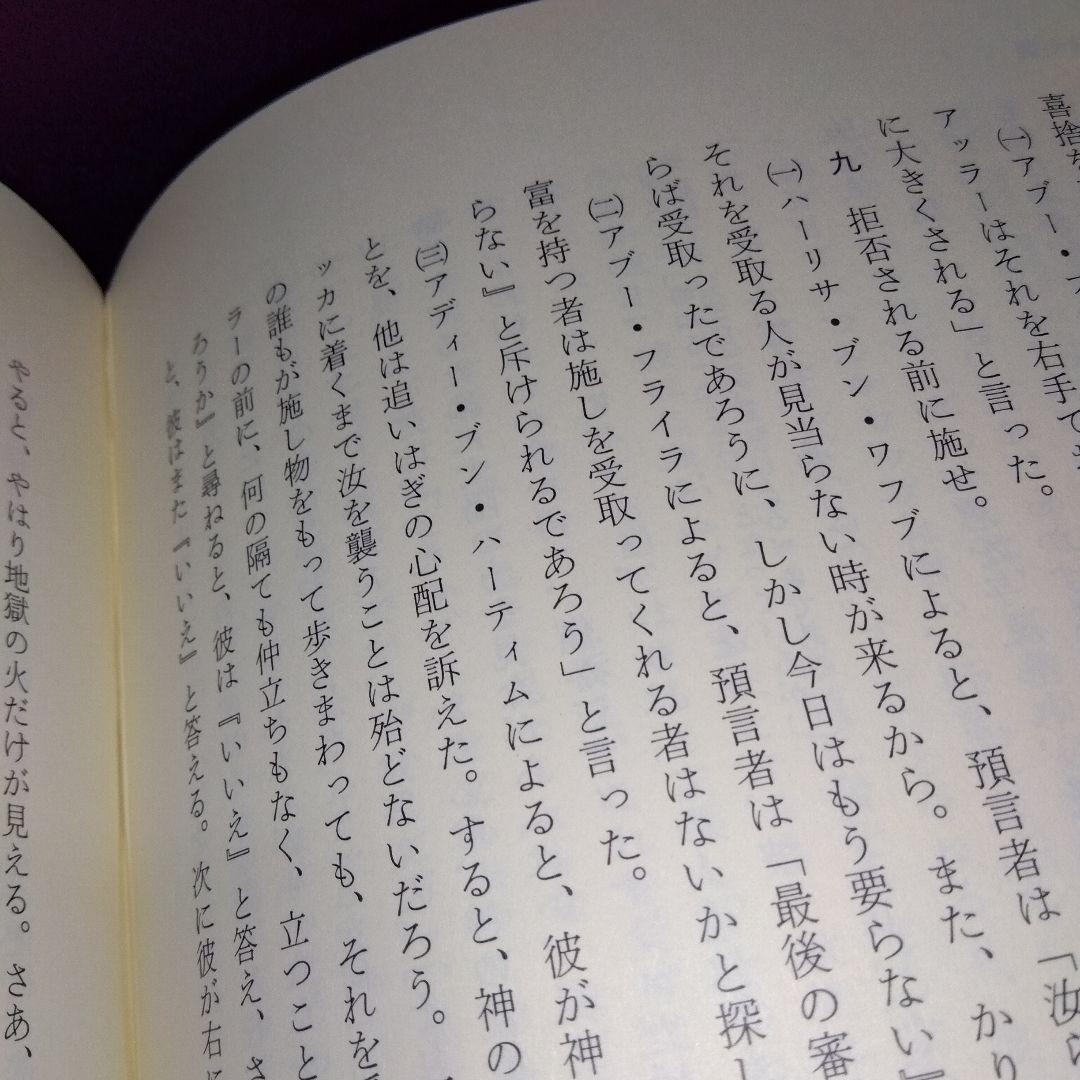 喜捨を
㈠アブー・フ
アッラーはそれを右手で
に大きくされる」と言った。
九 拒否される前に施せ。
㈠ハーリサ・ブン・ワフブによると、預言者は「汝ら
それを受取る人が見当らない時が来るから。また、かり
らば受取ったであろうに、しかし今日はもう要らない』
㈡アブー・フライラによると、預言者は「最後の審
富を持つ者は施しを受取ってくれる者はないかと探し
らない』と斥けられるであろう」と言った。
㈢アディー・ブン・ハーティムによると、彼が神
とを、他は追いはぎの心配を訴えた。すると、神の
ッカに着くまで汝を襲うことは殆どないだろう。
の誰もが施し物をもって歩きまわっても、それを
ラーの前に、何の隔ても仲立ちもなく、立つこと
ろうか』と尋ねると、彼は『いいえ』と答え、さ
と、彼はまた『いいえ』と答える。次に彼が右に
やると、やはり地獄の火だけが見える。さあ、